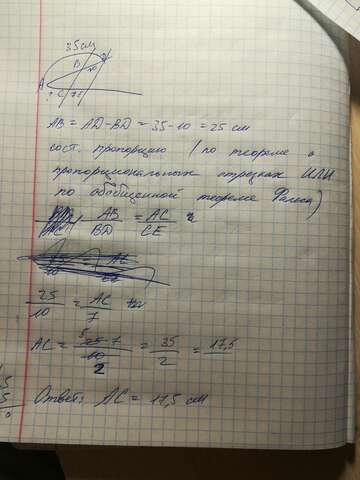 35 см
D
B 10
A
? C 7 E
AB = AD - BD = 35 - 10 = 25 см
сост. пропорцию (по теореме о
пропорциональных отрезках ИЛИ
по обобщенной теореме Фалеса)
AB/BD = AC/CE
25/10 = AC/7
AC = 25·7/10 = 35/2 = 17,5
5
2
Ответ: AC = 17,5 см